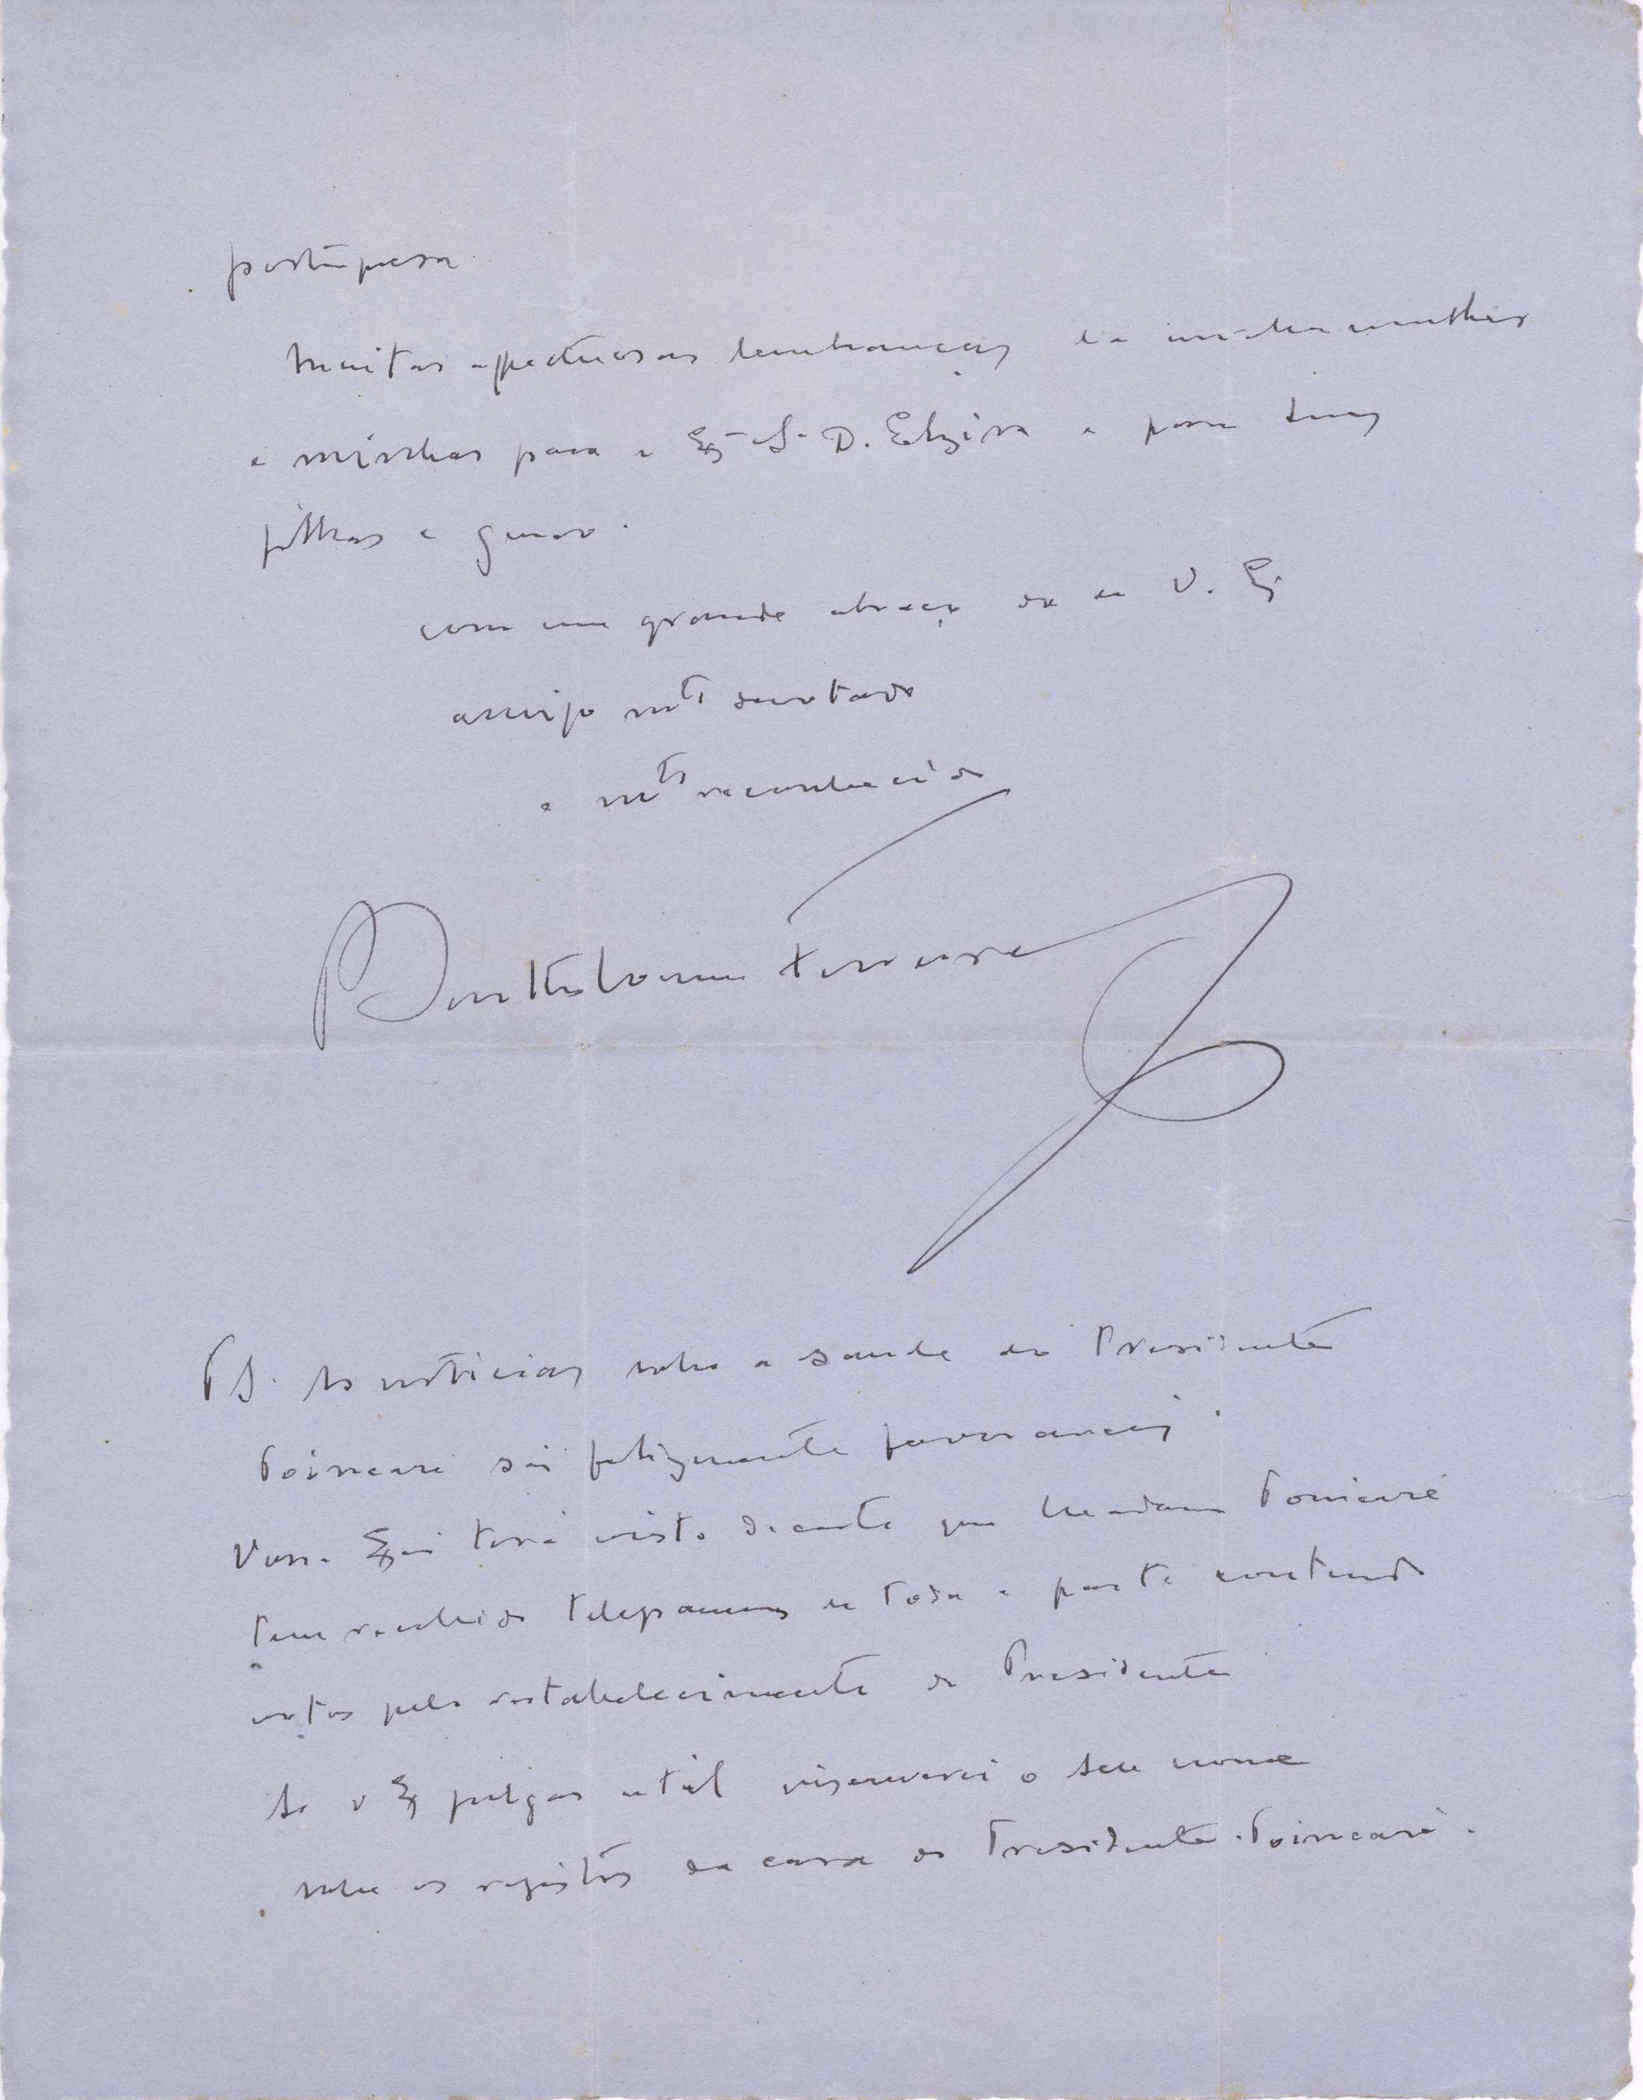 portuguesa.
Muitas affectuosas lembranças da minha mulher
e minhas para a Exª Srª D. Elzira e para suas
filhas e genro.
com um grande abraço do de V. Exª
amigo mto devotado
e mto reconhecido
Bartholomeu Ferreira
PS. As noticias sobre a saude do Presidente
Poincaré são felizmente favoraveis.
Vossa Exia terá visto decerto que Madame Poincaré
tem recebido telegramas de toda a parte contendo
votos pelo restabelecimento do Presidente
Se V Exª julgar util inscreverei o seu nome
sobre os registos da casa do Presidente Poincaré.